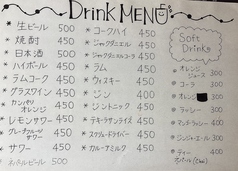 Drink MENU
*生ビール 500
*焼酎 450
*日本酒 500
*ハイボール 450
*ラムコーク 450
*グラスワイン 450
*カンパリ
オレンジ 450
*レモンサワー 450
*グレープフルーツ
サワー 450
*サワー 450
*ネパールビール 500
*コークハイ 450
*ジャックダニエル 450
*ジャックダニエルコーラ 450
*ラム 450
*ウィスキー 450
*ジン 400
*ジントニック 450
*テキーラサンライズ 450
*スクリュードライバー 450
*カルーアミルク 450
Soft
Drinks
*オレンジ
ジュース 300
*コーラ 300
*オレンジ 300
*ラッシー 300
*マンゴーラッシー 400
*ジンジャーエール 300
*ティー 400